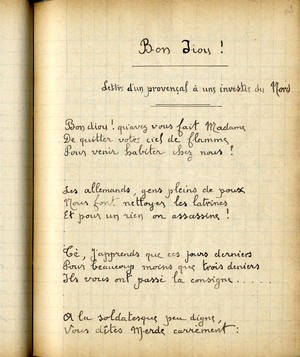 Bon Diou !
Lettre d'un provençal à une investie du Nord
Bon diou ! qu'avez vous fait Madame
De quitter votre ciel de flamme
Pour venir habiter chez nous !
Les allemands, gens pleins de poux
Nous font nettoyer les latrines
Et pour un rien on assassine !
Té, J'apprends que ces jours derniers
Pour beaucoup moins que trois deniers
Ils vous ont passé la consigne ......
A la soldatesque peu digne,
Vous dîtes Merde carrément :